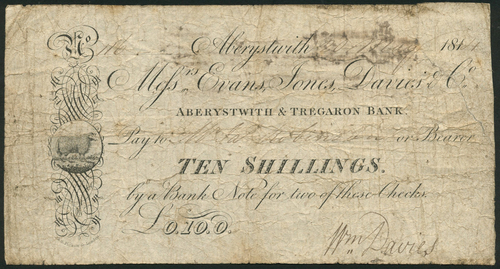 No Aberystwith 181
Messrs Evans, Jones, Davies & Co
ABERYSTWITH & TREGARON BANK
Pay to Mr Robinson or Bearer
TEN SHILLINGS.
by a Bank Note for two of these Checks.
£0.10.0.
Wm Davies